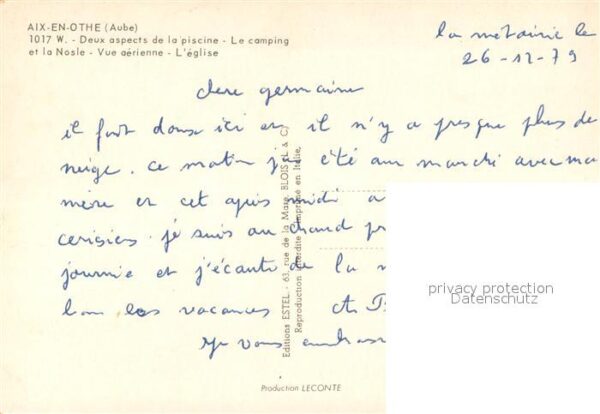 AIX-EN-OTHE (Aube)
1017 W. - Deux aspects de la piscine - Le camping
et la Nosle - Vue aérienne - L'église
la métairie le
26-12-79
chere germaine
il fait doux ici et il n'y a presque plus de
neige. ce matin j'ai été au marché avec ma
mère et cet après midi a
cerisiers. je suis au chaud
journée et j'écoute de la
bon les vacances
Je vous embrass
Editions ESTEL - 63, rue de la Mare, BLOIS (L. & C.)
Reproduction interdite - Imprimé en Italie
privacy protection
Datenschutz
Production LECONTE